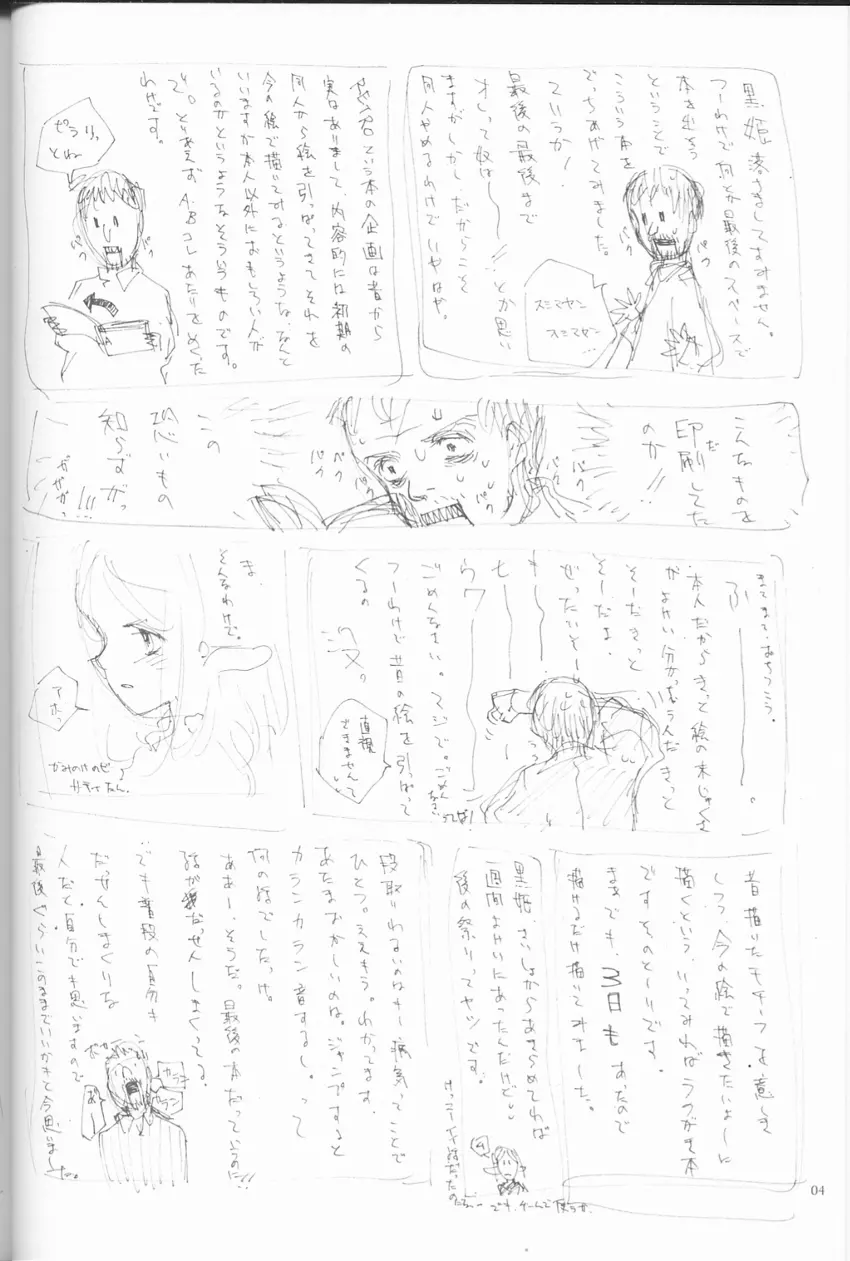 黒姫落ちましてすみません。
つーわけで何とか最後のスペースで
本を出そう
ということで
こういう本を
でっちあげてみました。
ていうか!
最後の最後まで
オレって奴は――!!とか思い
ますがしかし、だからこそ
同人やめるわけで。いやはや。
スミマセン
スミマセン…
パク
パク
という本の企画は昔から
実はありまして、内容的には初期の
同人から絵を引っぱってきてそれを
今の絵で描いてみるというような、なんと
いいますか本人以外におもしろい人が
いるのかというようなそういうものです。
で。とりあえず、A.Bコレあたりをめくった
わけです。
ピラリっ
とね
パク
パク
A
こんなものを
印刷してた
だ
のか!!
パク
パク
パク
パク
この
恐いもの
知らずがっ
!!!
まてまて、おちつこう。
ふ――。
本人だからきっと絵の未じゅくさ
がよけい分かっちゃうんだ きっと
そーだきっと
そーだよ、
ぜったいそー
ごめんなさい。マジで。ごめん
なさい
つーわけで昔の絵を引っぱって
くるの
没っ
直視
できませんて
ま、
そんなわけで。
アホっ
昔描いたモチーフを意しき
しつつ、今の絵で描きたいよーに
描くという、いってみればラクがき本
です。そのとーりです。
まあでも、3日もあったので
描けるだけ描いてみました。
黒姫、さいしょからあきらめてれば
一週間よけいにあったんだけど。
後の祭りってヤツです。
段取りわるいのはもー病気ってことで
ひとつ。ええもう。わかってます。
あたまおかしいのは。ジャンプすると
カランカラン音するし。って
何の話でしたっけ。
ああー、そうだ。最後の本だっていうのに!!
話が脱せんしまくってる。
でも普段の自分も
だっせんしまくりな
人だと自分でも思いますので
最後くらいこのままでいいかもと今思いました。
カラン
カラン
あ
04